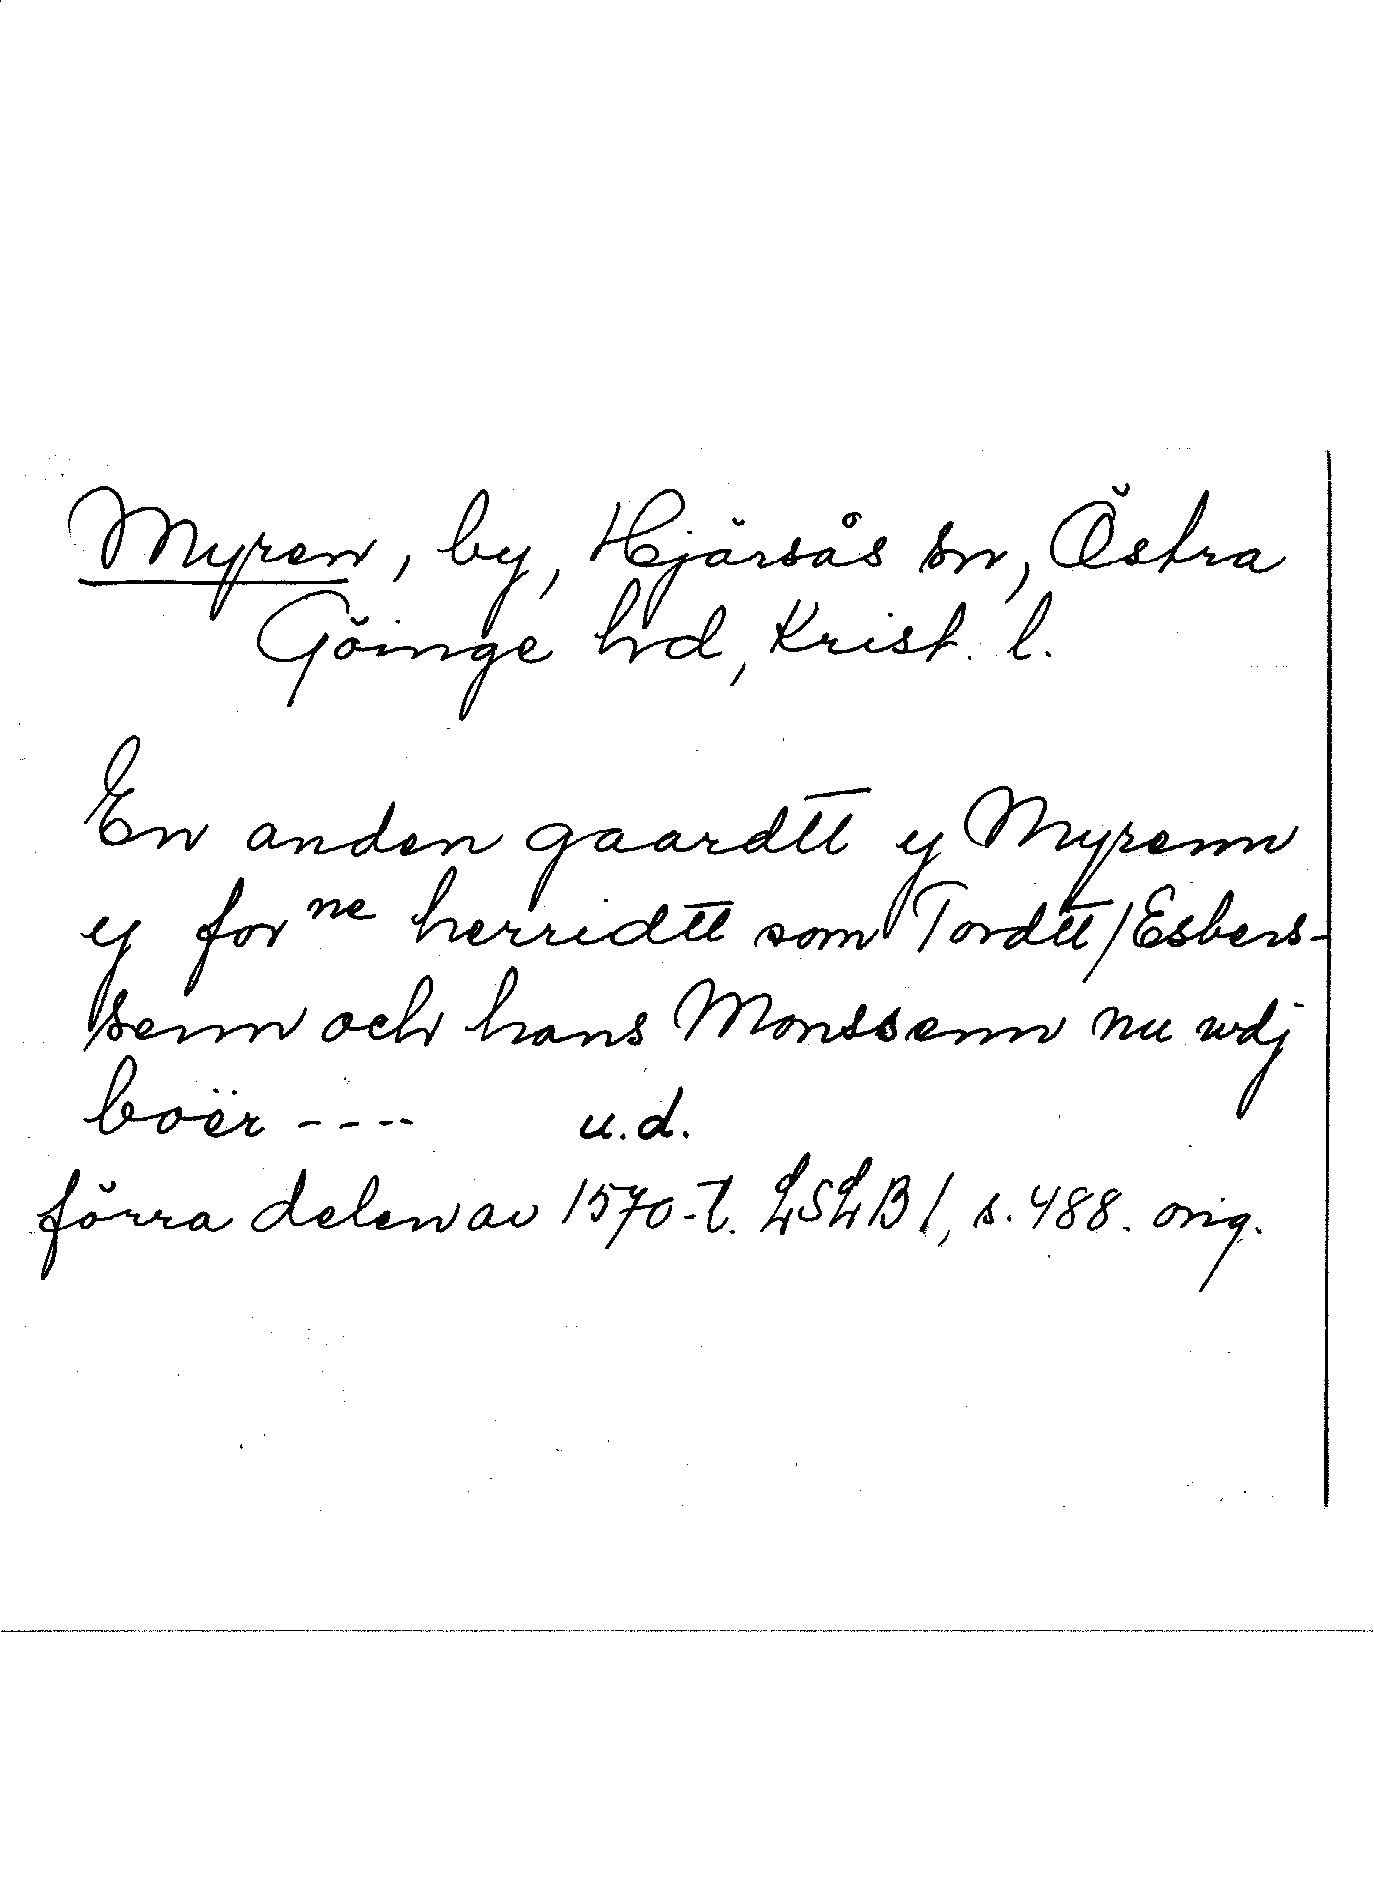 Myren, by, Hjärsås sn, Östra
Göinge hd, Krist. l.
En anden gaardtt y Myrenn
y for ne herridtt som Tordtt / Esbers-
senn och hans Monssenn nu wdj
boër ---- u.d.
förra delen av 1570-t. LSLB 1, s. 488. orig.